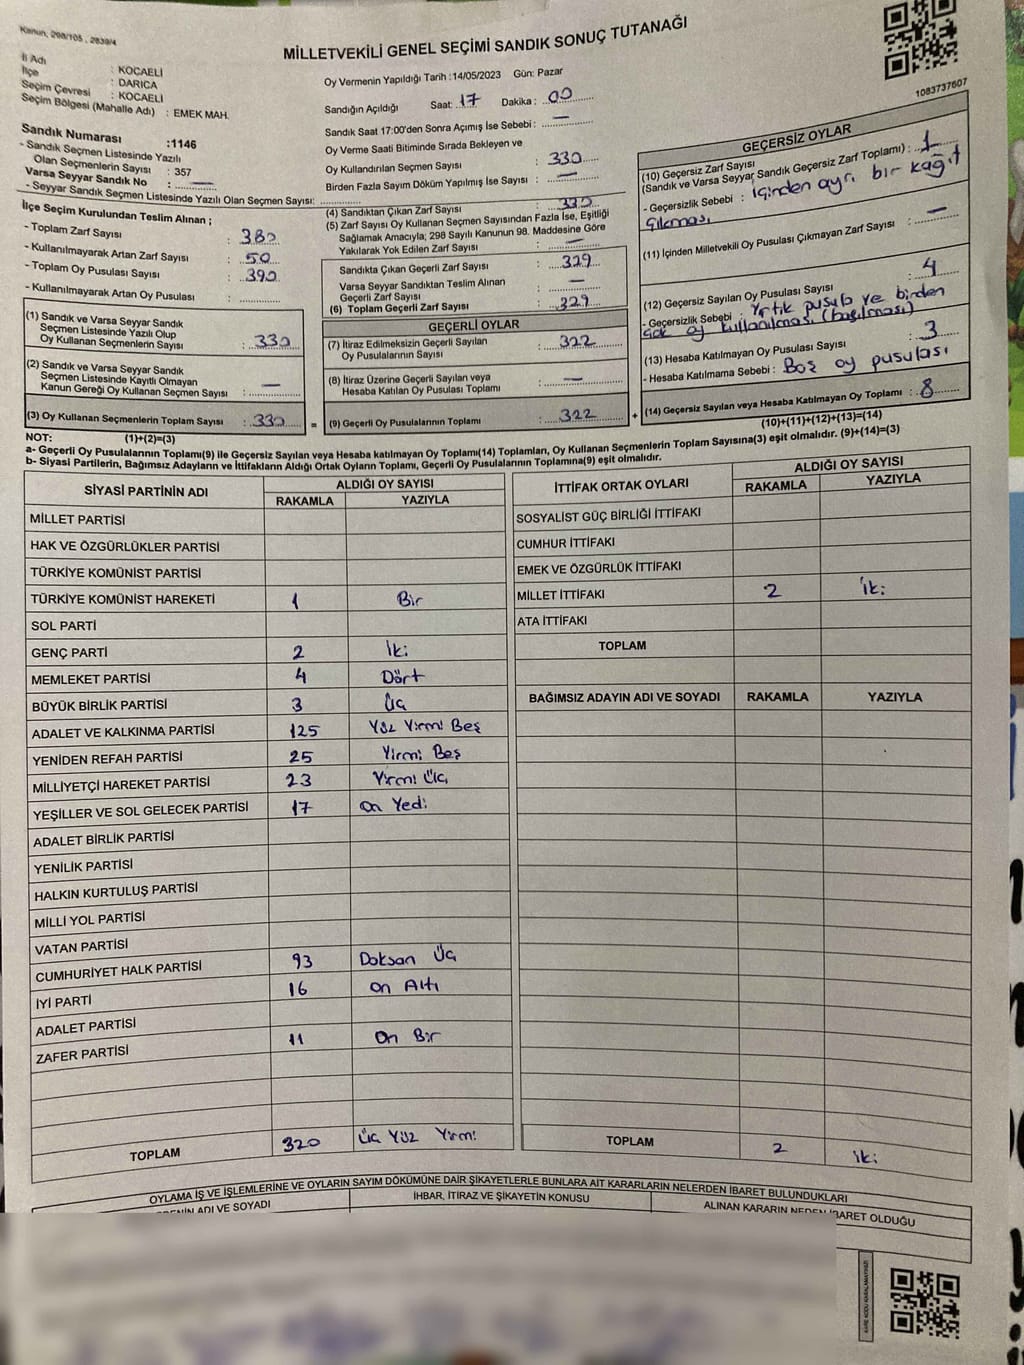 Kanun, 298/105 , 2839/4
MİLLETVEKİLİ GENEL SEÇİMİ SANDIK SONUÇ TUTANAĞI
1083737607
İl Adı : KOCAELİ
İlçe : DARICA
Seçim Çevresi : KOCAELİ
Seçim Bölgesi (Mahalle Adı) : EMEK MAH.
Sandık Numarası :1146
- Sandık Seçmen Listesinde Yazılı
Olan Seçmenlerin Sayısı : 357
Varsa Seyyar Sandık No : —
- Seyyar Sandık Seçmen Listesinde Yazılı Olan Seçmen Sayısı: ..............
İlçe Seçim Kurulundan Teslim Alınan ;
- Toplam Zarf Sayısı : 380
- Kullanılmayarak Artan Zarf Sayısı : 50
- Toplam Oy Pusulası Sayısı : 390
- Kullanılmayarak Artan Oy Pusulası : ..............
(1) Sandık ve Varsa Seyyar Sandık
Seçmen Listesinde Yazılı Olup
Oy Kullanan Seçmenlerin Sayısı : 330
(2) Sandık ve Varsa Seyyar Sandık
Seçmen Listesinde Kayıtlı Olmayan
Kanun Gereği Oy Kullanan Seçmen Sayısı : —
(3) Oy Kullanan Seçmenlerin Toplam Sayısı : 330 =
Oy Vermenin Yapıldığı Tarih :14/05/2023 Gün: Pazar
Sandığın Açıldığı Saat: 17 Dakika : 00
Sandık Saat 17:00'den Sonra Açımış İse Sebebi : —
Oy Verme Saati Bitiminde Sırada Bekleyen ve
Oy Kullandırılan Seçmen Sayısı : 330
Birden Fazla Sayım Döküm Yapılmış İse Sayısı : —
(4) Sandıktan Çıkan Zarf Sayısı : 330
(5) Zarf Sayısı Oy Kullanan Seçmen Sayısından Fazla İse, Eşitliği
Sağlamak Amacıyla; 298 Sayılı Kanunun 98. Maddesine Göre
Yakılarak Yok Edilen Zarf Sayısı : —
Sandıkta Çıkan Geçerli Zarf Sayısı : 329
Varsa Seyyar Sandıktan Teslim Alınan
Geçerli Zarf Sayısı : —
(6) Toplam Geçerli Zarf Sayısı : 329
GEÇERLİ OYLAR
(7) İtiraz Edilmeksizin Geçerli Sayılan
Oy Pusulalarının Sayısı : 322
(8) İtiraz Üzerine Geçerli Sayılan veya
Hesaba Katılan Oy Pusulası Toplamı : —
(9) Geçerli Oy Pusulalarının Toplamı : 322 +
GEÇERSİZ OYLAR
(10) Geçersiz Zarf Sayısı
(Sandık ve Varsa Seyyar Sandık Geçersiz Zarf Toplamı) : 1
- Geçersizlik Sebebi : içinden ayrı bir kağıt
çıkması
(11) İçinden Milletvekili Oy Pusulası Çıkmayan Zarf Sayısı : —
(12) Geçersiz Sayılan Oy Pusulası Sayısı : 4
- Geçersizlik Sebebi : Yırtık pusula ve birden
çok oy kullanılması (basılması)
(13) Hesaba Katılmayan Oy Pusulası Sayısı : 3
- Hesaba Katılmama Sebebi : Boş oy pusulası
(14) Geçersiz Sayılan veya Hesaba Katılmayan Oy Toplamı : 8
(10)+(11)+(12)+(13)=(14)
NOT: (1)+(2)=(3)
a- Geçerli Oy Pusulalarının Toplamı(9) ile Geçersiz Sayılan veya Hesaba Katılmayan Oy Toplamı(14) Toplamları, Oy Kullanan Seçmenlerin Toplam Sayısına(3) eşit olmalıdır. (9)+(14)=(3)
b- Siyasi Partilerin, Bağımsız Adayların ve İttifakların Aldığı Ortak Oyların Toplamı, Geçerli Oy Pusulalarının Toplamına(9) eşit olmalıdır.
SİYASİ PARTİNİN ADI ALDIĞI OY SAYISI
RAKAMLA YAZIYLA
MİLLET PARTİSİ
HAK VE ÖZGÜRLÜKLER PARTİSİ
TÜRKİYE KOMÜNİST PARTİSİ
TÜRKİYE KOMÜNİST HAREKETİ 1 Bir
SOL PARTİ
GENÇ PARTİ 2 İki
MEMLEKET PARTİSİ 4 Dört
BÜYÜK BİRLİK PARTİSİ 3 Üç
ADALET VE KALKINMA PARTİSİ 125 Yüz Yirmi Beş
YENİDEN REFAH PARTİSİ 25 Yirmi Beş
MİLLİYETÇİ HAREKET PARTİSİ 23 Yirmi Üç
YEŞİLLER VE SOL GELECEK PARTİSİ 17 On Yedi
ADALET BİRLİK PARTİSİ
YENİLİK PARTİSİ
HALKIN KURTULUŞ PARTİSİ
MİLLİ YOL PARTİSİ
VATAN PARTİSİ
CUMHURİYET HALK PARTİSİ 93 Doksan Üç
İYİ PARTİ 16 On Altı
ADALET PARTİSİ
ZAFER PARTİSİ 11 On Bir
TOPLAM 320 Üç Yüz Yirmi
İTTİFAK ORTAK OYLARI ALDIĞI OY SAYISI
RAKAMLA YAZIYLA
SOSYALİST GÜÇ BİRLİĞİ İTTİFAKI
CUMHUR İTTİFAKI
EMEK VE ÖZGÜRLÜK İTTİFAKI
MİLLET İTTİFAKI 2 İki
ATA İTTİFAKI
TOPLAM
BAĞIMSIZ ADAYIN ADI VE SOYADI RAKAMLA YAZIYLA
TOPLAM 2 İki
OYLAMA İŞ VE İŞLEMLERİNE VE OYLARIN SAYIM DÖKÜMÜNE DAİR ŞİKAYETLERLE BUNLARA AİT KARARLARIN NELERDEN İBARET BULUNDUKLARI
ADI VE SOYADI İHBAR, İTİRAZ VE ŞİKAYETİN KONUSU ALINAN KARARIN NEDEN İBARET OLDUĞU